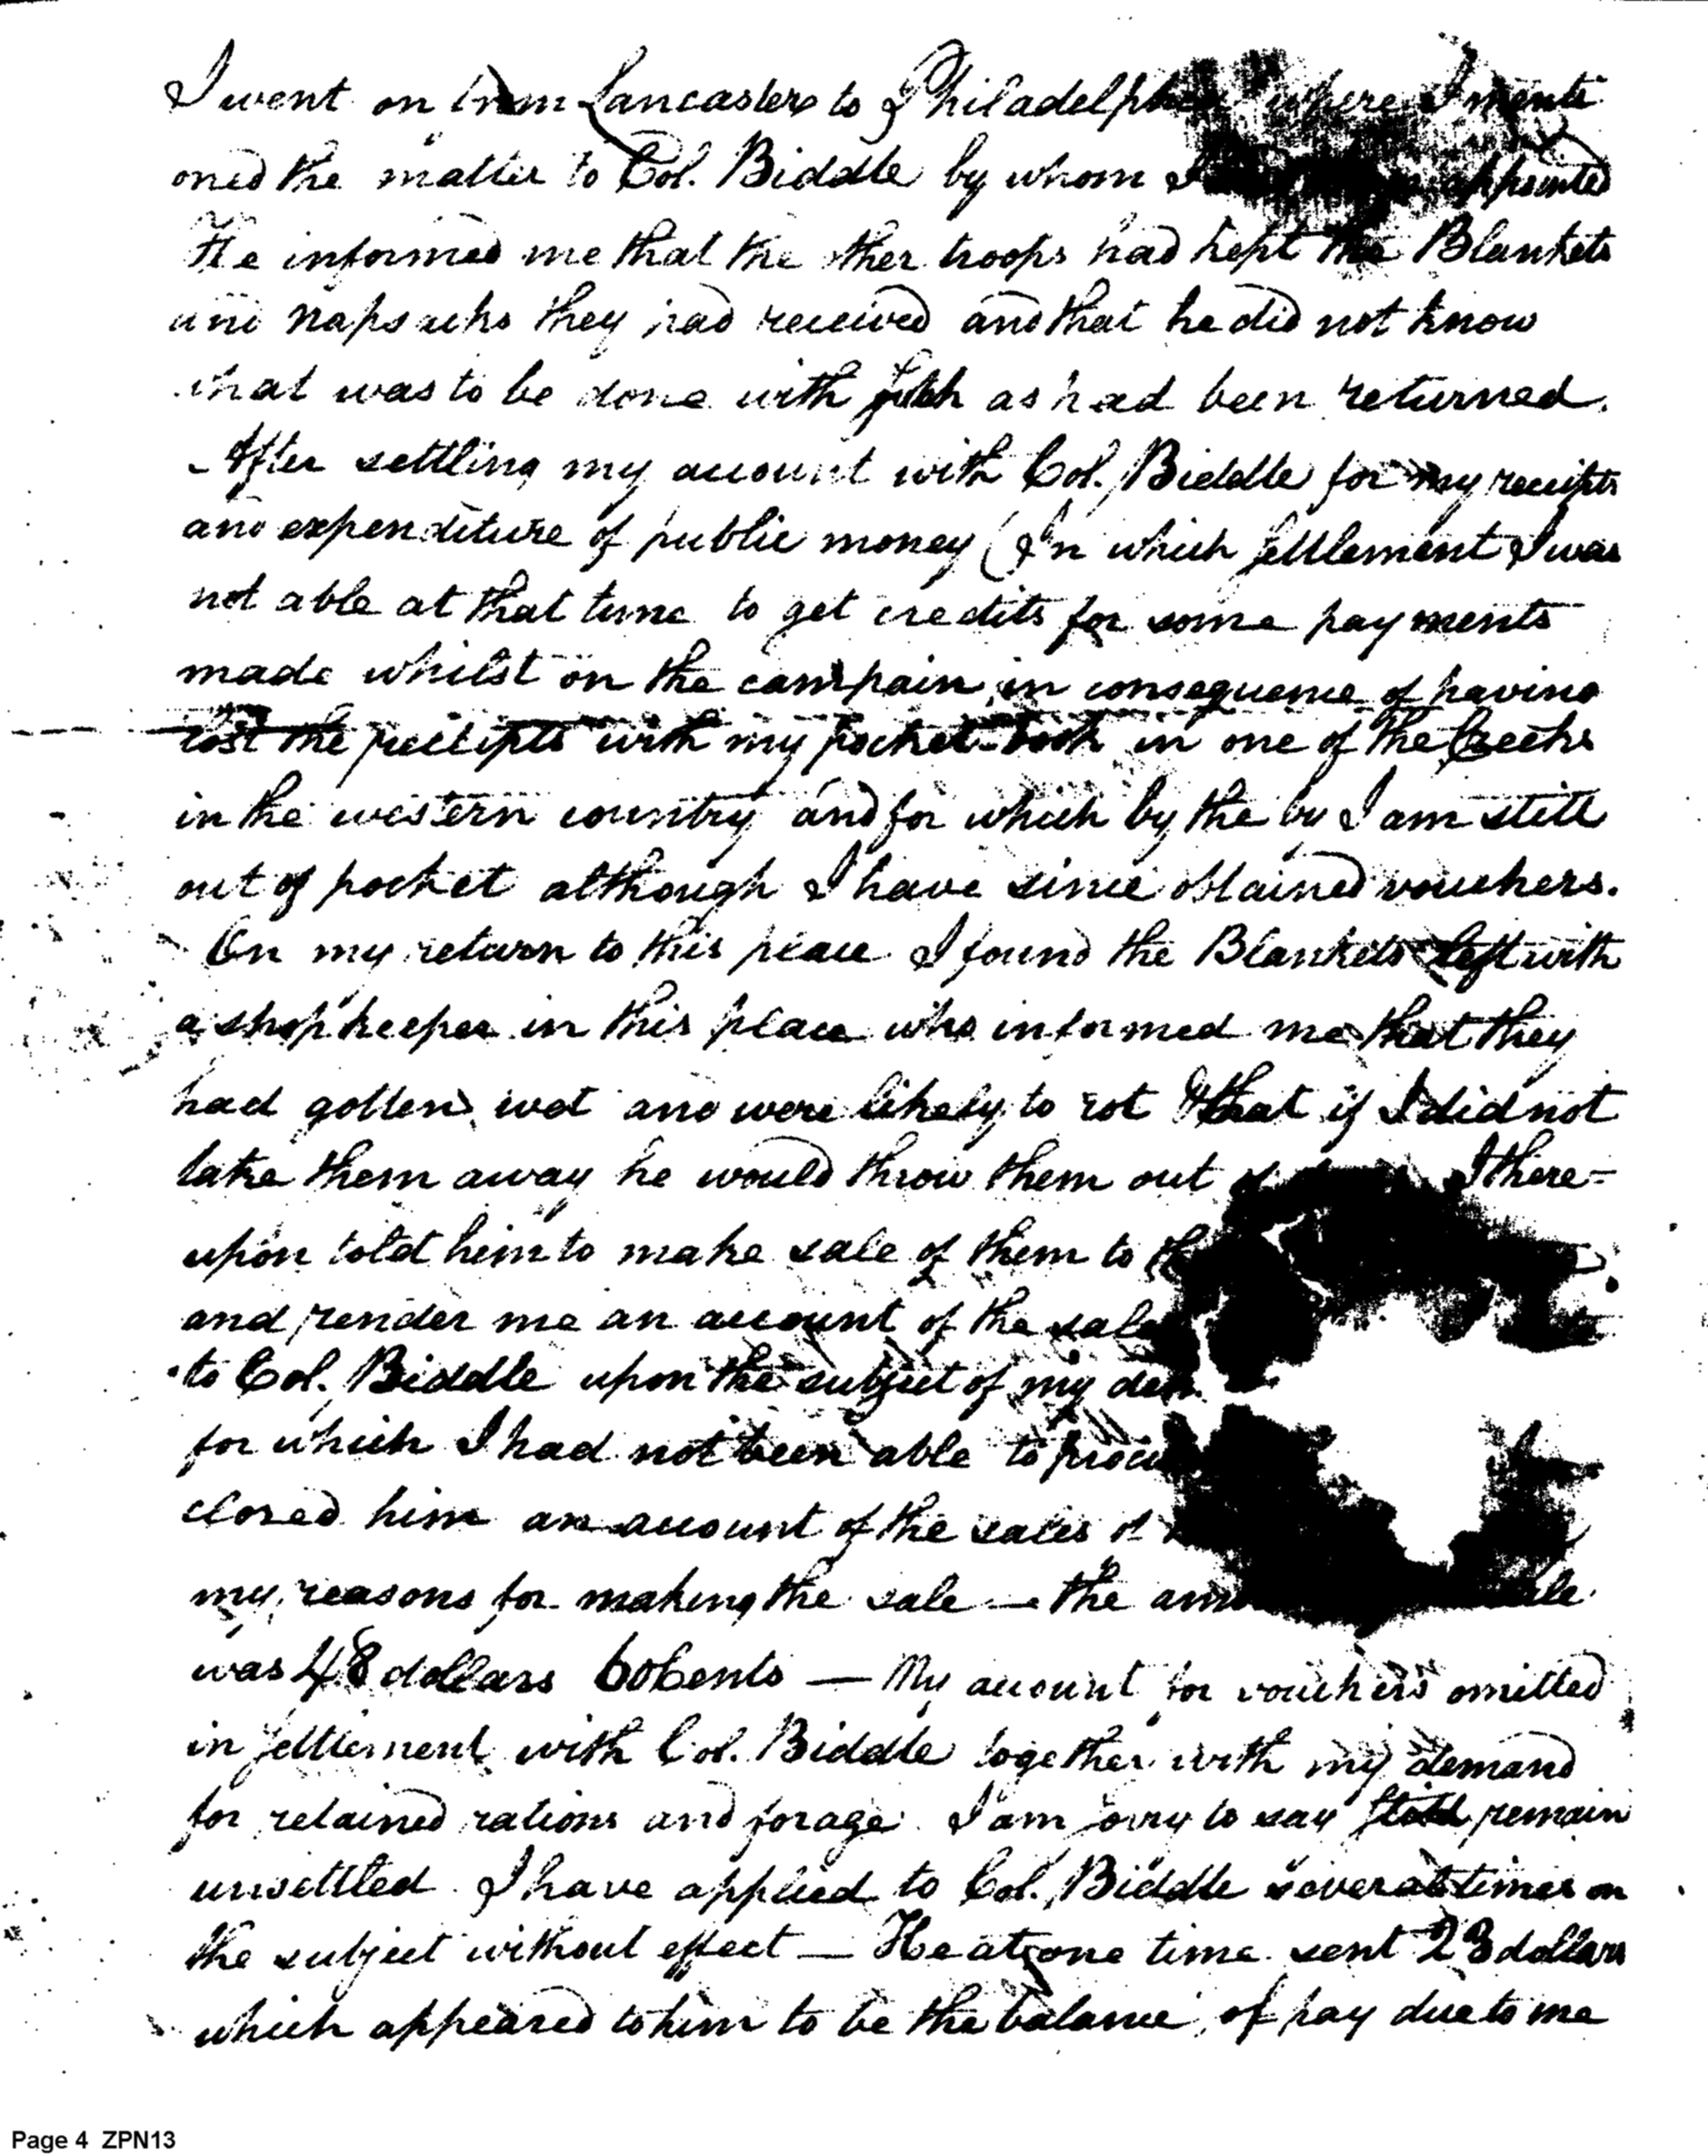 I went on from Lancaster to Philadelphia where I menti
oned the matter to Col. Biddle by whom I appointed
He informed me that the other troops had kept the Blankets
and napsacks they had received and that he did not know
what was to be done with such as had been returned.
After settling my account with Col. Biddle for my receipts
and expenditure of public money (In which settlement I was
not able at that time to get credits for some payments
made whilst on the campain, in consequence of having
lost the receipts with my pocket-book in one of the Creeks
in the western country and for which by the by I am still
out of pocket although I have since obtained vouchers.
On my return to this place I found the Blankets left with
a shopkeeper in this place who informed me that they
had gotten wet and were likely to rot & that if I did not
take them away he would throw them out I there-
upon told him to make sale of them to
and render me an account of the sale
to Col. Biddle upon the subject of my
for which I had not been able to
closed him an account of the sales of
my reasons for making the sale — the
was 48 dollars 60 Cents — My account for vouchers omitted
in settlement with Col. Biddle together with my demand
for retained rations and forage I am sorry to say still remain
unsettled. I have applied to Col. Biddle several times on
the subject without effect — He at one time sent 23 dollars
which appeared to him to be the balance of pay due to me
Page 4 ZPN13